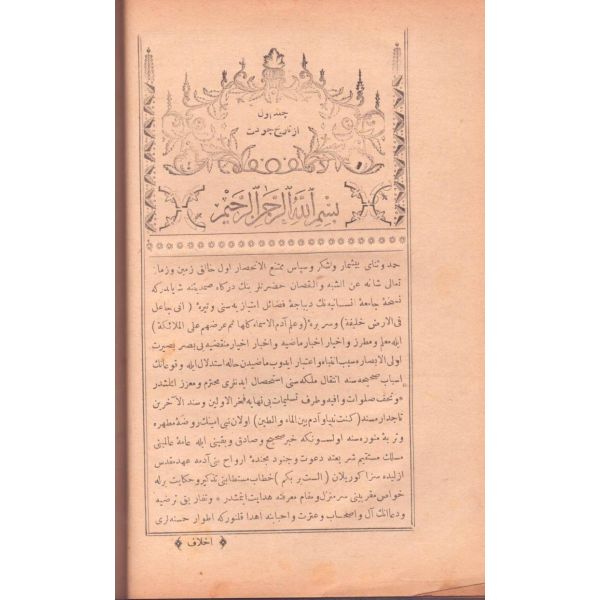 جلد اول
از تاريخ جودت
بسم الله الرحمن الرحيم
حمد وثنای بيشمار وشكر وسپاس ممتنع الانحصار اول خالق زمين وزمان
تعالی شانه عن الشبه والنقصان حضرتلرينك درگاه صمديتنه شاياندركه
نسخهٔ جامعهٔ انسانيه‌نك ديباجهٔ فضائل امتياز يه‌سنی وتيرهٔ ( انی جاعل
فی الارض خليفة ) وسربرهٔ ( وعلم آدم الاسماء كلها ثم عرضهم علی الملائكة )
ايله معلم ومطرز واخبار اخيار ماضيه واخيار اخبار منقضيه‌یی بصر بصيرت
اولی الابصاره سبب انتباه واعتبار ايدوب ماضيدن حاله استدلال ايله وقوعاتك
اسباب صحيحه‌سنه انتقال ملكه‌سنی استحصال ايدنلری محترم ومعزز ايلمشدر
وتحف صلوات وافيه وطرف تسليمات بی نهايه فخر الاولين وسند الآخرين
تاجدار مسند ( كنت نبيا وآدم بين الماء والطين ) اولان نبی امينك روضهٔ مطهره
وتربهٔ منوره‌سنه اولسونكه خبر صحيح وصادق ويقينی ايله عامهٔ عالمينی
مسلك مستقيم شريعته دعوت وجنود مجندهٔ ارواح بنی آدمه عهد مقدس
ازليده سزا كوريلان ( الست بربكم ) خطاب مستطابنی تذكير وحكايت برله
خواص مقربينی سرمنزل ومقام معرفته هدايت ايتمشدر * وتفاريق ترضيه
ودعا انك آل واصحاب وعترت واحبابنه اهدا قلنوركه اطوار حسنه‌لری
اخلاف